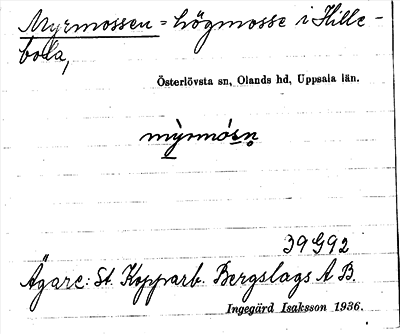 Myrmossen = högmosse i Hille-
boda,
Österlövsta sn, Olands hd, Uppsala län.
mỳ̱rmósn̥
39 G92
Ägare: St. Kopparb. Bergslags A B.
Ingegärd Isaksson 1936.